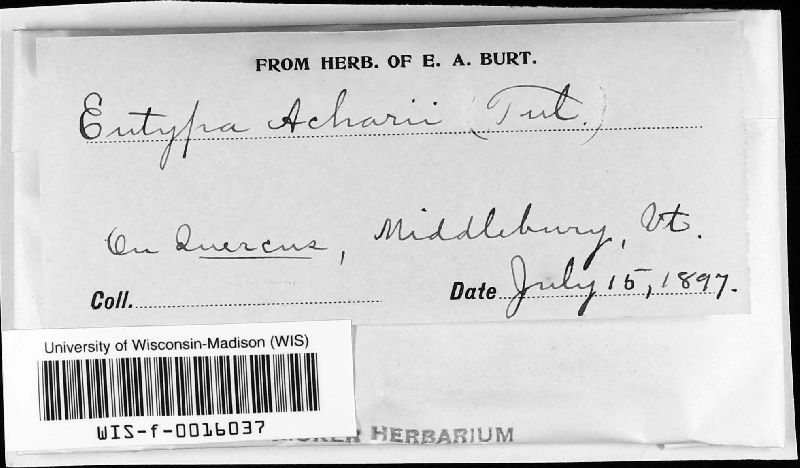 FROM HERB. OF E. A. BURT.
Eutypa Acharii (Tul.)
On Quercus, Middlebury, Vt.
Coll. Date July 15, 1897.
University of Wisconsin-Madison (WIS)
WIS-f-0016037
HERBARIUM